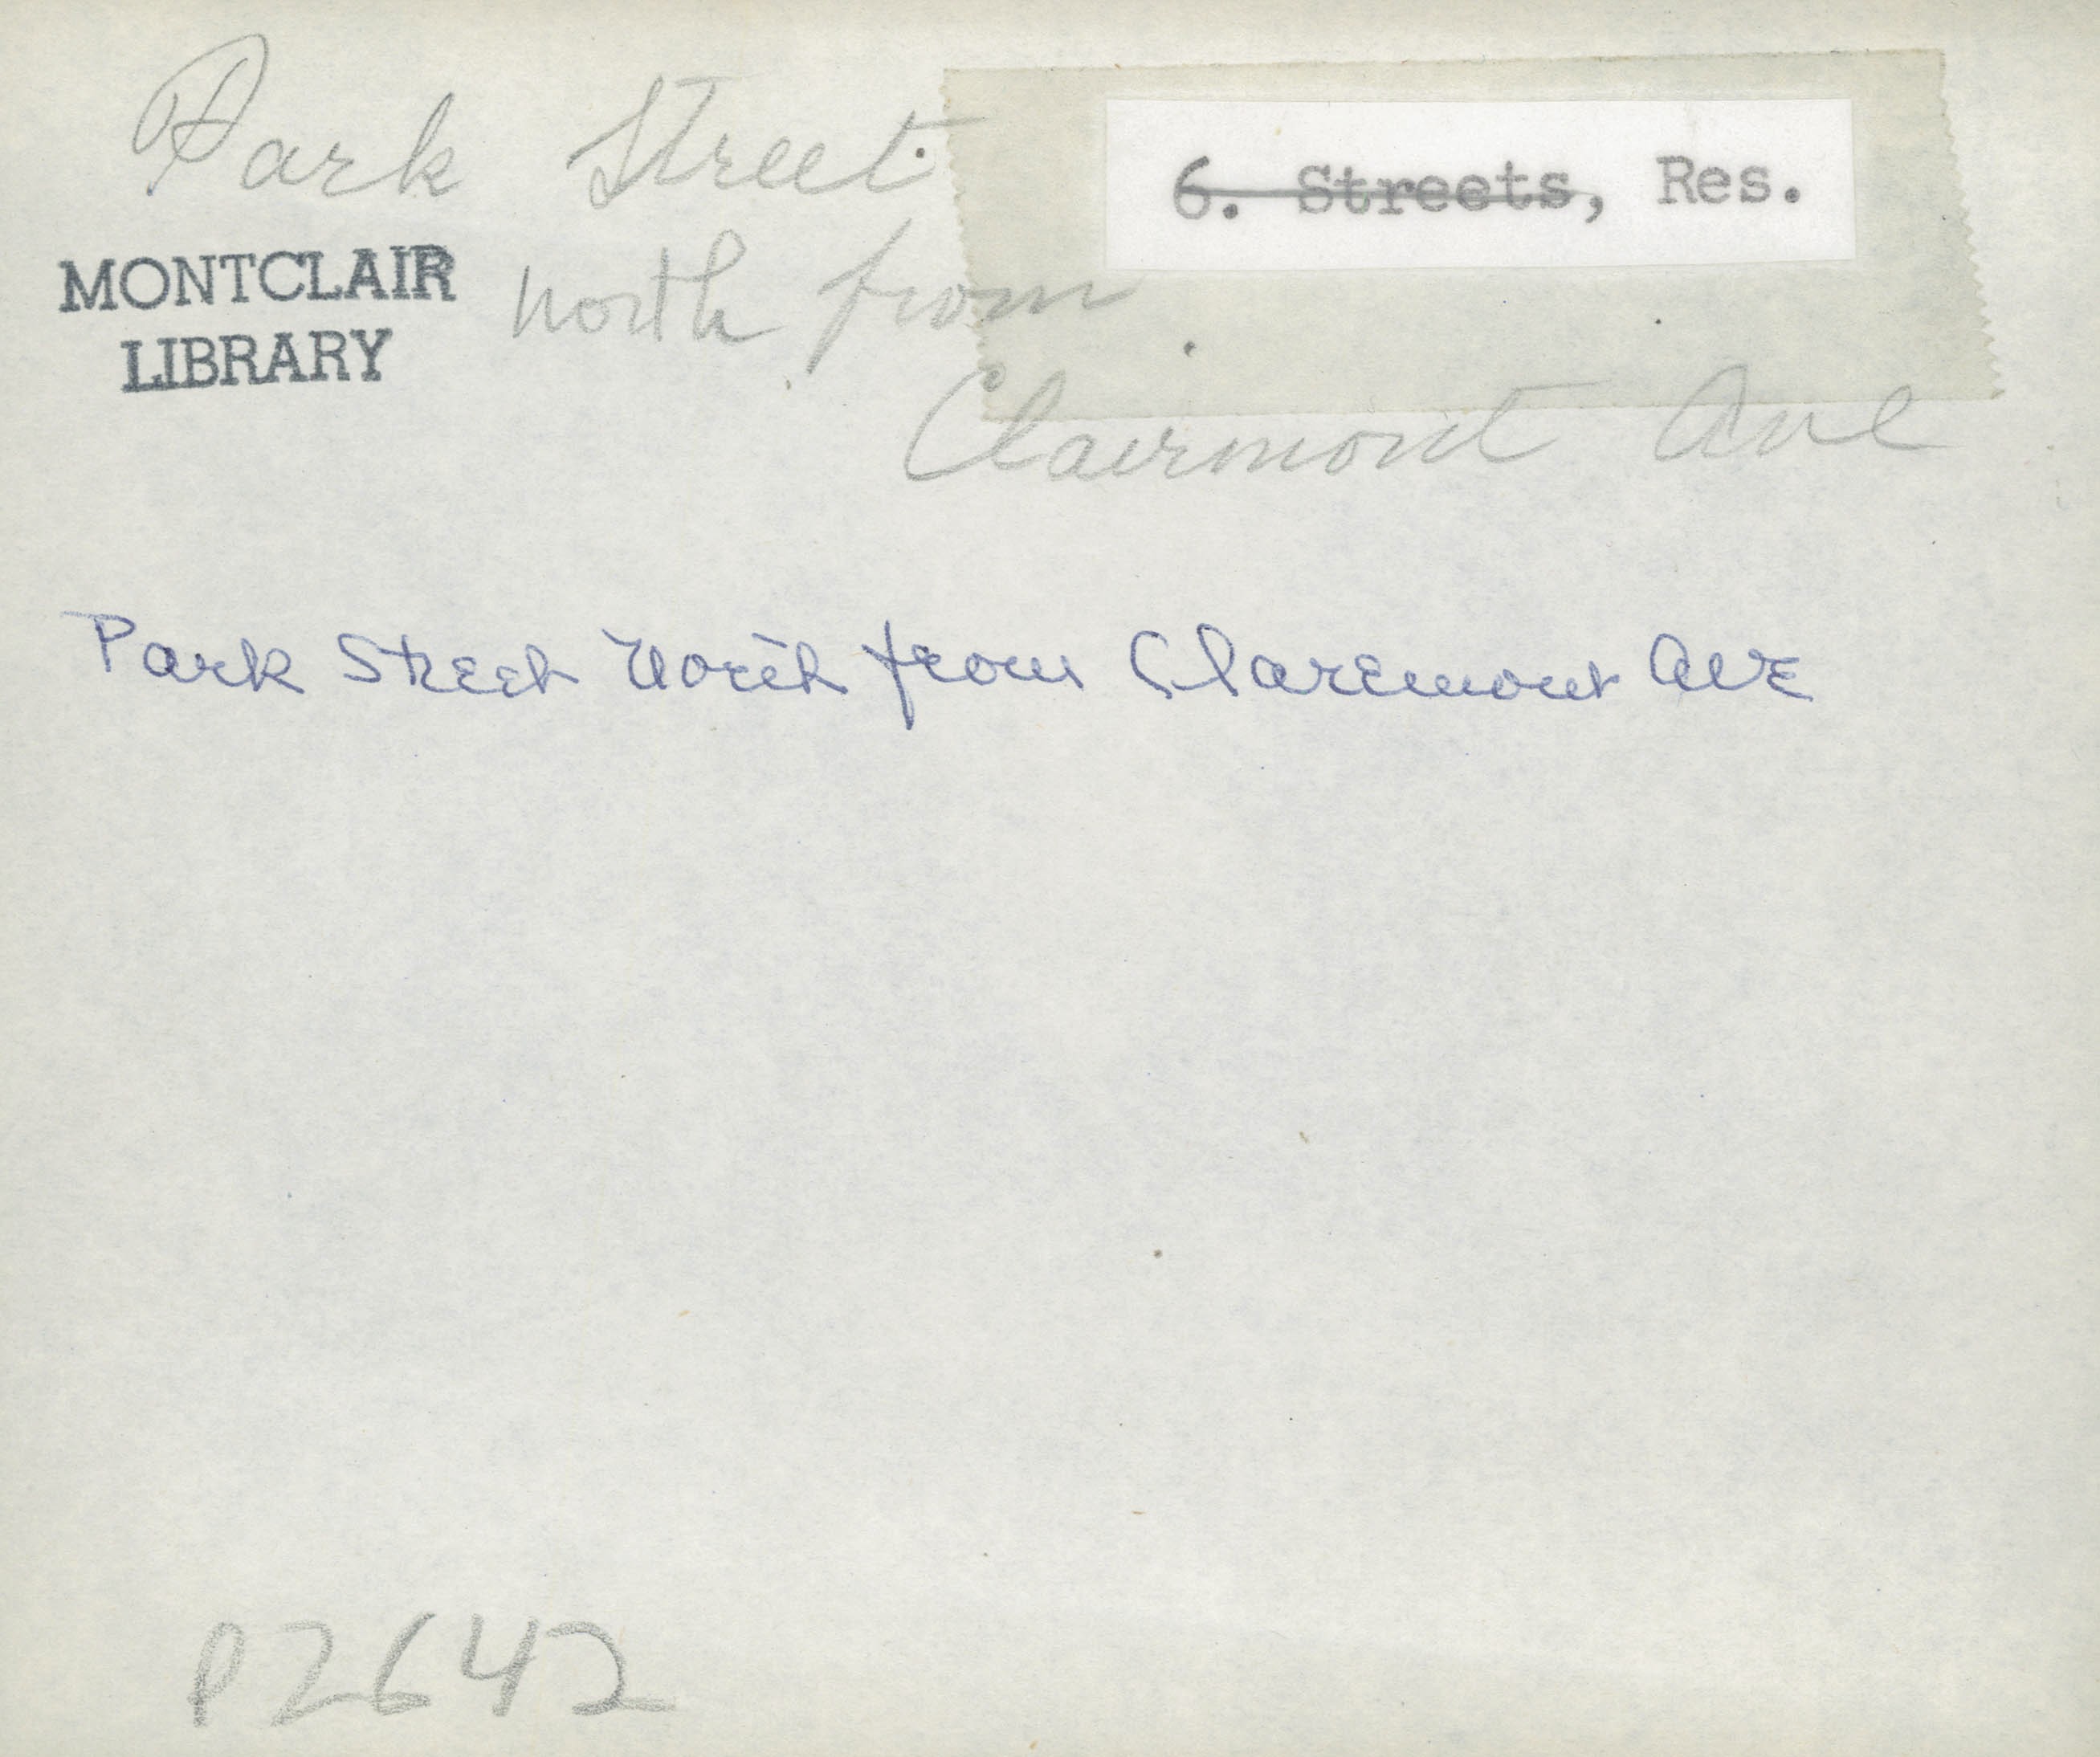 Park Street
6. Streets, Res.
MONTCLAIR
LIBRARY
north from
Clairmont Ave
Park Street North from Claremont Ave
P2642